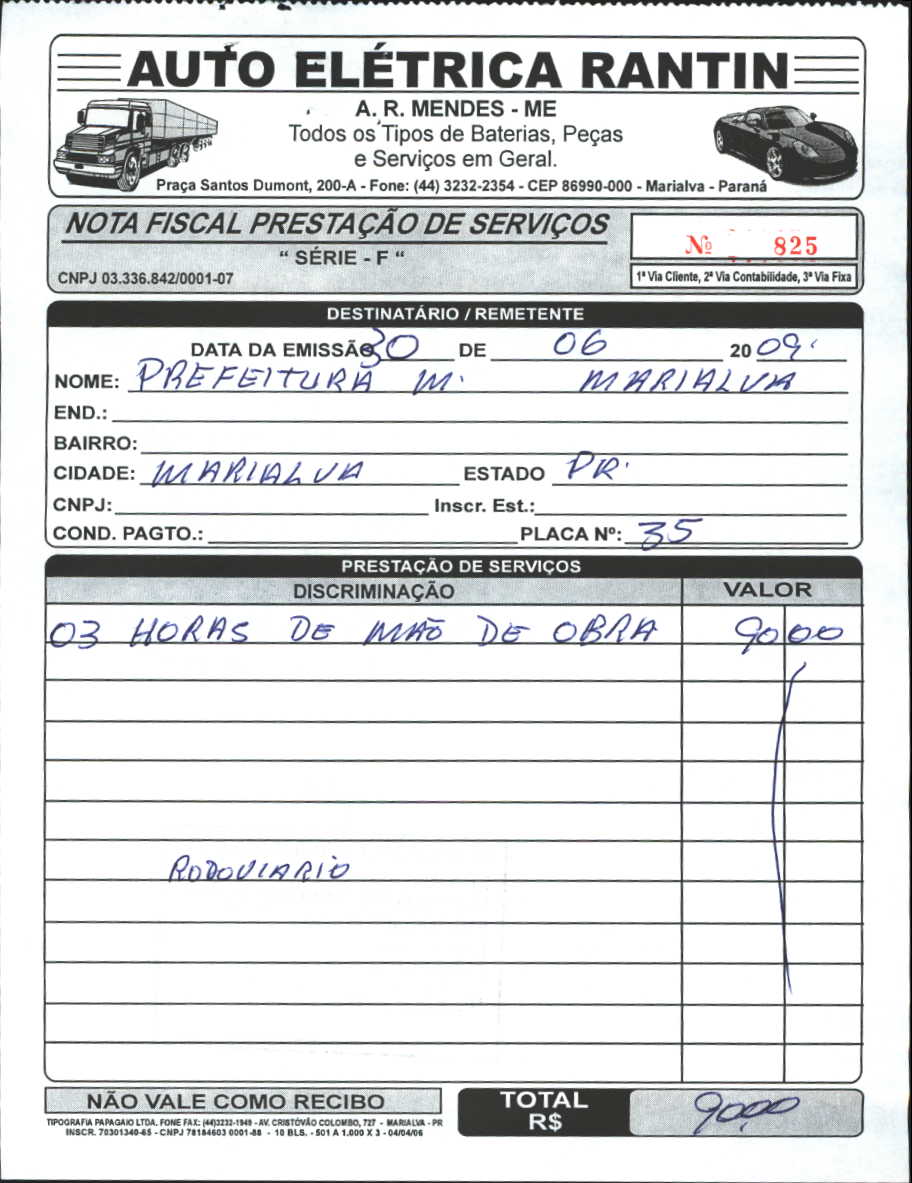 AUTO ELÉTRICA RANTIN
A. R. MENDES - ME
Todos os Tipos de Baterias, Peças
e Serviços em Geral.
Praça Santos Dumont, 200-A - Fone: (44) 3232-2354 - CEP 86990-000 - Marialva - Paraná
NOTA FISCAL PRESTAÇÃO DE SERVIÇOS
“ SÉRIE - F “
CNPJ 03.336.842/0001-07
Nº 825
1ª Via Cliente, 2ª Via Contabilidade, 3ª Via Fixa
DESTINATÁRIO / REMETENTE
DATA DA EMISSÃO 30 DE 06 2009
NOME: PREFEITURA M. MARIALVA
END.:
BAIRRO:
CIDADE: MARIALVA ESTADO PR.
CNPJ: Inscr. Est.:
COND. PAGTO.: PLACA Nº: 35
PRESTAÇÃO DE SERVIÇOS
DISCRIMINAÇÃO VALOR
03 HORAS DE MÃO DE OBRA 90 00
RODOVIARIO
NÃO VALE COMO RECIBO
TOTAL R$ 90,00
TIPOGRAFIA PAPAGAIO LTDA. FONE FAX: (44)3232-1949 - AV. CRISTÓVÃO COLOMBO, 727 - MARIALVA - PR
INSCR. 70301340-65 - CNPJ 78184603 0001-88 - 10 BLS. - 501 A 1.000 X 3 - 04/04/06